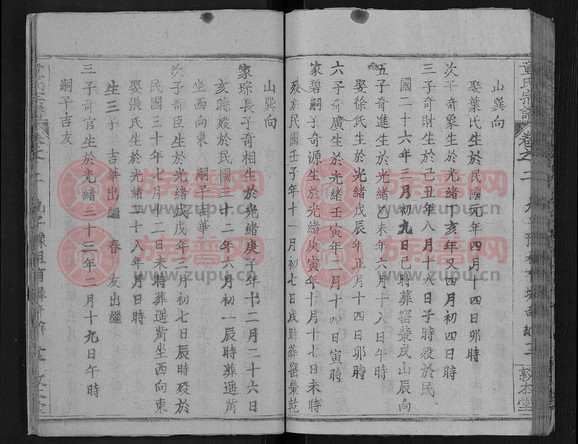 山巽向
娶葉氏生於民國元年四月十四日卯時
次子奇象生於光緒亥年又四月初四日
三子奇財生於己丑年八月十九日子時歿於民
國二十六年三月初九日己時葬窑柴戌山辰向
五子奇進生於光緒乙未年六月十八日午時
娶徐氏生於光緒戊辰年正月十四日卯時
六子奇廣生於光緒壬寅年二月十四日寅時
家碧嗣子奇源生於光緒庚寅年十月十七日未時
歿於民國壬子年十一月初七日戌時葬窑柴乾
山巽向
家珎長子奇相生於光緒庚子年十二月二十六日
亥時歿於民國二十二年六月初一辰時葬遥
坐西向東 嗣子吉華
次子奇臣生於光緒戊戌年三月初七日辰時歿於
民國三十年七月十二日未時葬遥坐西向東
娶張氏生於光緒二十八年月日時
生三子 吉華出繼 春 友出繼
三子奇官生於光緒三十三年二月十九日午時
嗣子吉友
童氏宗譜
卷之二
敦本堂
族譜网
www.zupu.cn
族譜网
www.zupu.cn
族譜网
www.zupu.cn
族譜网
www.zupu.cn